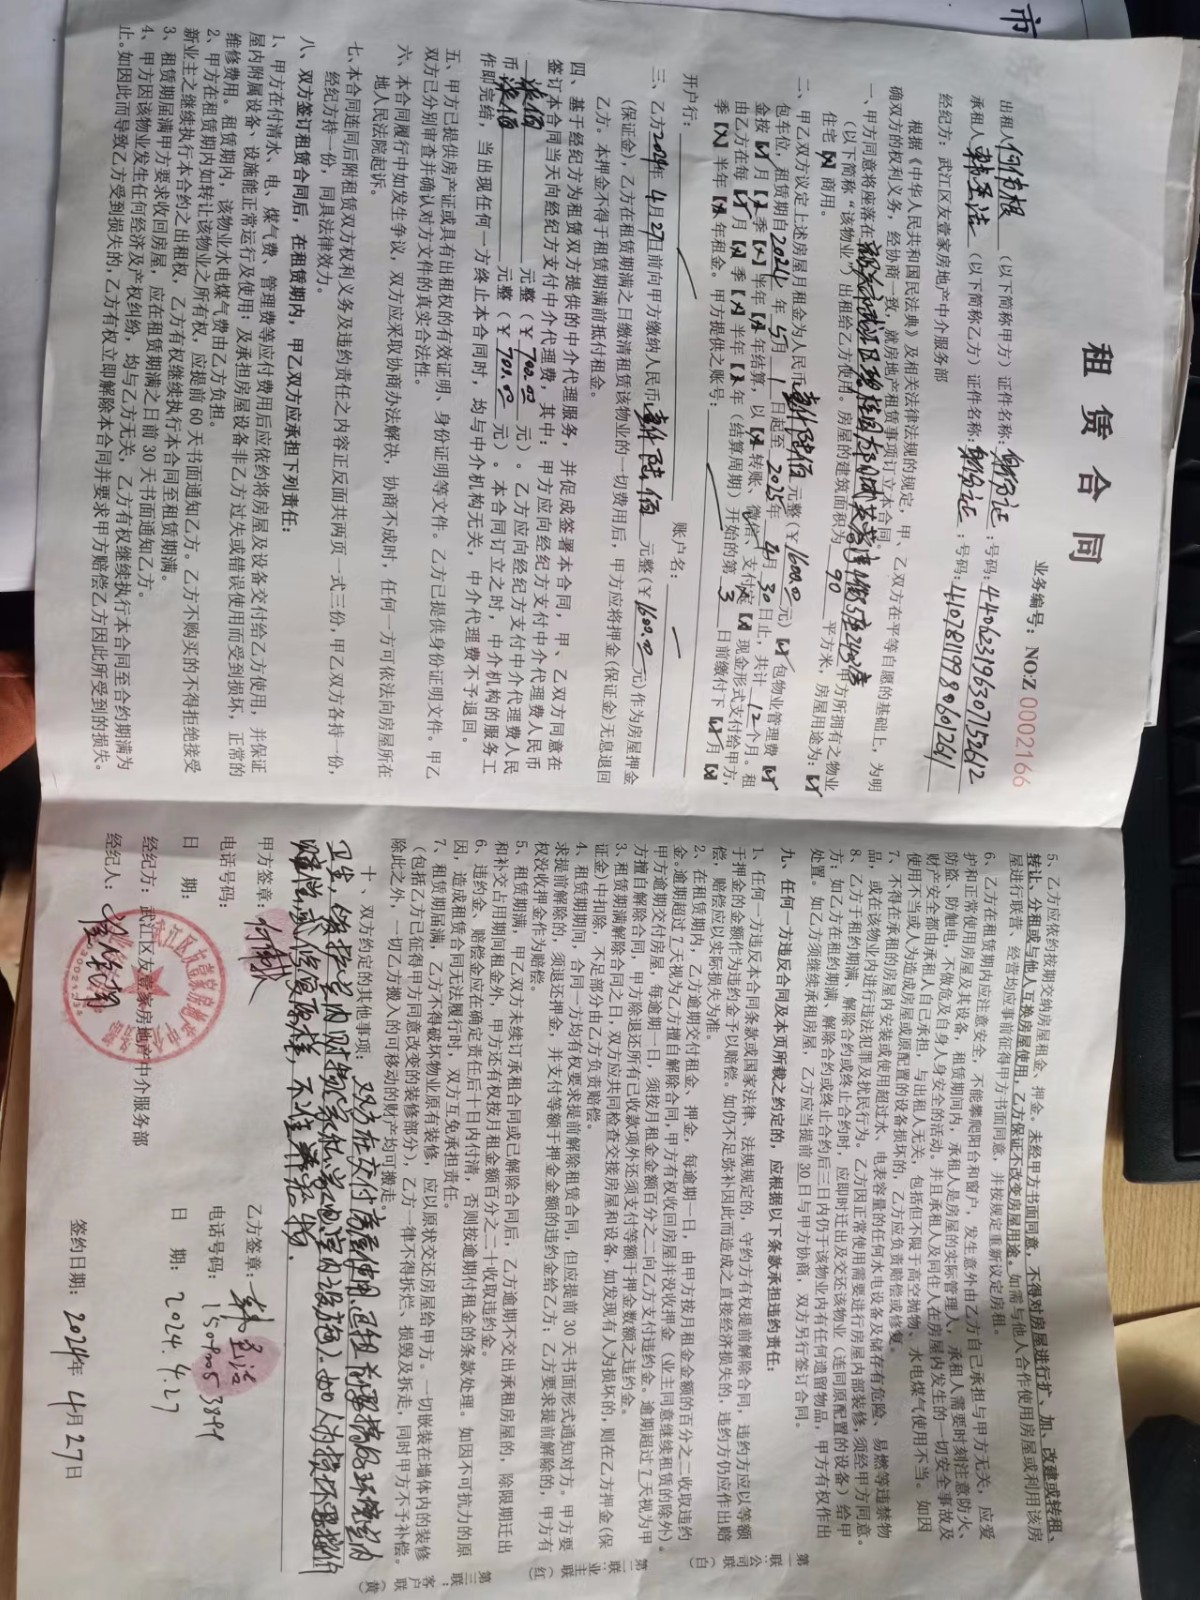 市
租赁合同
业务编号：NO:Z 0002166
出租人何伟根（以下简称甲方）证件名称：身份证；号码：440623196307152612
承租人（以下简称乙方）证件名称：身份证；号码：440781199806012611
经纪方：武江区友壹家房地产中介服务部
根据《中华人民共和国民法典》及相关法律法规的规定，甲、乙双方在平等自愿的基础上，为明
确双方的权利义务，经协商一致，就房地产租赁事项订立本合同。
一、甲方同意将座落在甲方所拥有之物业
（以下简称“该物业”）出租给乙方使用。房屋的建筑面积为90平方米，房屋用途为：【✓】
住宅【×】商用。
二、甲乙双方议定上述房屋月租金为人民币壹仟陆佰元整（￥1600.00元）【✓】包物业管理费【✓】
包车位，租赁期自2024年5月1日起至2025年4月30日止，共计12个月。租
金按【✓】月【×】季【×】半年【×】年结算，以【×】转账、微信、支付宝【×】现金形式支付给甲方，
由乙方在每【✓】月【×】季【×】半年【×】年（结算周期）开始的第3日前缴付下【✓】月【×】
季【×】半年【×】年租金。甲方提供之账号：
开户行：账户名：
三、乙方2024年4月27日前向甲方缴纳人民币壹仟陆佰元整（￥1600.00元）作为房屋押金
（保证金），乙方在租赁期满之日缴清租赁该物业的一切费用后，甲方应将押金（保证金）无息退回
乙方。本押金不得于租赁期满前抵付租金。
四、基于经纪方为租赁双方提供的中介代理服务，并促成签署本合同，甲、乙双方同意在
签订本合同当天向经纪方支付中介代理费，其中：甲方应向经纪方支付中介代理费人民币
柒佰元整（￥700.00元）。乙方应向经纪方支付中介代理费人民
币柒佰元整（￥700.00元）。本合同订立之时，中介机构的服务工
作即完结，当出现任何一方终止本合同时，均与中介机构无关，中介代理费不予退回。
五、甲方已提供房产证或具有出租权的有效证明、身份证明等文件。乙方已提供身份证明文件。甲乙
双方已分别审查并确认对方文件的真实合法性。
六、本合同履行中如发生争议，双方应采取协商办法解决，协商不成时，任何一方可依法向房屋所在
地人民法院起诉。
七、本合同连同后附租赁双方权利义务及违约责任之内容正反面共两页一式三份，甲乙双方各持一份，
经纪方持一份，同具法律效力。
八、双方签订租赁合同后，在租赁期内，甲乙双方应承担下列责任：
1、甲方在付清水、电、煤气费、管理费等应付费用后应依约将房屋及设备交付给乙方使用，并保证
屋内附属设备、设施能正常运行及使用；及承担房屋设备非乙方过失或错误使用而受到损坏，正常的
维修费用。租赁期内，该物业水电煤气费由乙方负担。
2、甲方在租赁期内如转让该物业之所有权，应提前60天书面通知乙方。乙方不购买的不得拒绝接受
新业主之继续执行本合约之出租权，乙方有权继续执行本合同至租赁期满。
3、租赁期届满甲方要求收回房屋，应在租赁期满之日前30天书面通知乙方。
4、甲方因该物业发生任何经济及产权纠纷，均与乙方无关，乙方有权继续执行本合同至合约期满为
止。如因此而导致乙方受到损失的，乙方有权立即解除本合同并要求甲方赔偿乙方因此所受到的损失。
5、乙方应依约按期交纳房屋租金，押金。未经甲方书面同意，不得对房屋进行扩、加、改建或转租、
转让、分租或与他人互换房屋使用，乙方保证不改变房屋用途。如需与他人合作使用房屋或利用该房
屋进行联营，经营均应事前征得甲方书面同意，并按规定重新议定房租。
6、乙方在租赁期内应注意安全，不能攀爬阳台和窗户，发生意外由乙方自己承担与甲方无关，应爱
护和正常使用房屋及其设备，租赁期间内，承租人是房屋的实际管理人，承租人需要时刻注意防火、
防盗、防触电，不做危及自身人身安全的活动。并且承租人及同住人在房屋内发生的一切安全事故及
财产安全都由承租人自己承担，与出租人无关，包括但不限于高空抛物、水电煤气使用不当。如因
使用不当或人为造成房屋或原配置的设备损坏的，乙方应负责赔偿或修复。
7、不得在承租的房屋内安装或使用超过水、电表容量的任何水电设备及储存有危险、易燃等违禁物
品，或在该物业内进行违法犯罪及扰民行为。乙方因正常使用需要进行房屋内部装修，须经甲方同意。
8、乙方于租约期满、解除合约或终止合约时，应即时迁出及交还该物业（连同原配置的设备）给甲
方；如乙方在租约期满，解除合约或终止合约后三日内仍于该物业内有任何遗留物品，甲方有权作出
处置。如乙方须继续承租房屋，乙方应当提前30日与甲方协商，双方另行签订合同。
九、任何一方违反合同及本页所载之约定的，应根据以下条款承担违约责任：
1、任何一方违反本合同条款或国家法律、法规规定的，守约方有权提前解除合同，违约方应以等额
于押金的金额作为违约金予以赔偿。如仍不足弥补因此而造成之直接经济损失的，违约方仍应作出赔
偿，赔偿应以实际损失为准。
2、在租赁期内，乙方逾期交付租金、押金，每逾期一日，由甲方按月租金金额的百分之二收取违约
金。逾期超过7天视为乙方擅自解除合同，甲方有权收回房屋并没收押金（业主同意继续租赁的除外）。
甲方逾期交付房屋，每逾期一日，须按月租金金额百分之二向乙方支付违约金。逾期超过7天视为甲
方擅自解除合同，甲方除退还所有已收款项外还须支付等额于押金数额之违约金。
3、租赁期满解除合同之日，双方应共同检查交接房屋和设备，如发现有人为损坏的，则在乙方押金（保
证金）中扣除，不足部分由乙方负责赔偿。
4、租赁期期间，合同一方均有权要求提前解除租赁合同，但应提前30天书面形式通知对方。甲方要
求提前解除的，须退还押金，并支付等额于押金金额的违约金给乙方；乙方要求提前解除的，甲方有
权没收押金作为赔偿。
5、租赁期满，甲乙双方未续订承租合同或已解除合同后，乙方逾期不交出承租房屋的，除限期迁出
和补交占用期间租金外，甲方还有权按月租金额百分之二十收取违约金。
6、违约金、赔偿金应在确定责任后十日内付清，否则按逾期付租金的条款处理。如因不可抗力的原
因，造成租赁合同无法履行时，双方互免承担责任。
7、租赁期届满，乙方不得破坏物业原有装修，应以原状交还房屋给甲方。一切嵌装在墙体内的装修
（包括乙方已征得甲方同意改变的装修部分），乙方一律不得拆烂、损毁及拆走，同时甲方不予补偿。
除此之外，一切乙方搬入的可移动的财产均可搬走。
十、双方约定的其他事项：双方在交付房屋使用，退租前需搞好环境室内
卫生，
甲方签章：乙方签章：
电话号码：电话号码：
日期：日期：2024.4.27
经纪方：武江区友壹家房地产中介服务部
经纪人：签约日期：2024年4月27日
第一联：公司联（白）
第二联：业主联（红）
第三联：客户联（黄）